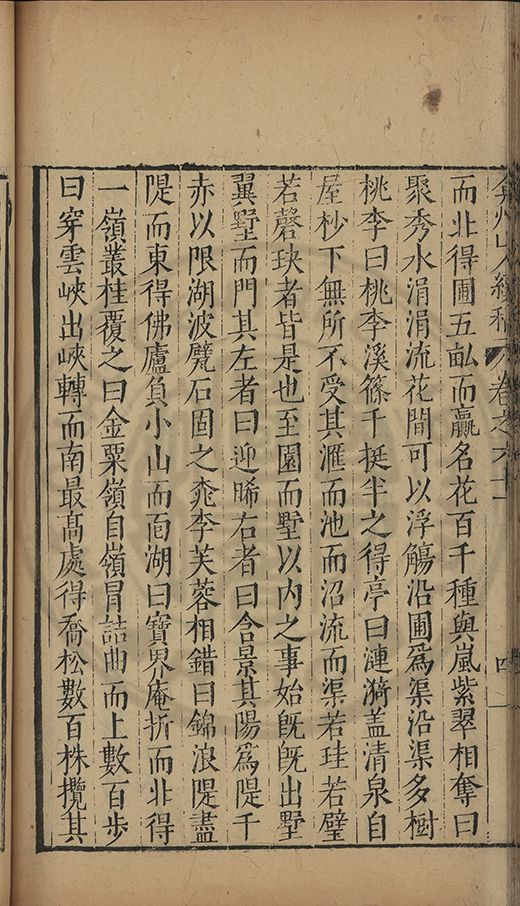 弇州山人續稿 卷之六十 四
而北得圃五畝而贏名花百千種與嵐紫翠相奪曰
聚秀水涓涓流花間可以浮觴沿圃為渠沿渠多樹
桃李曰桃李溪篠千挺半之得亭曰漣漪盖清泉自
屋杪下無所不受其滙而池而沼流而渠若珪若璧
若磬玦者皆是也至園而墅以内之事始旣旣出墅
翼墅而門其左者曰迎晞右者曰含景其陽為隄千
赤以限湖波甃石固之桃李芙蓉相錯曰錦浪隄盡
隄而東得佛廬負小山而面湖曰寶界庵折而北得
一嶺叢桂覆之曰金粟嶺自嶺冐詰曲而上數百步
曰穿雲峽出峽轉而南最髙處得喬松數百株攬其